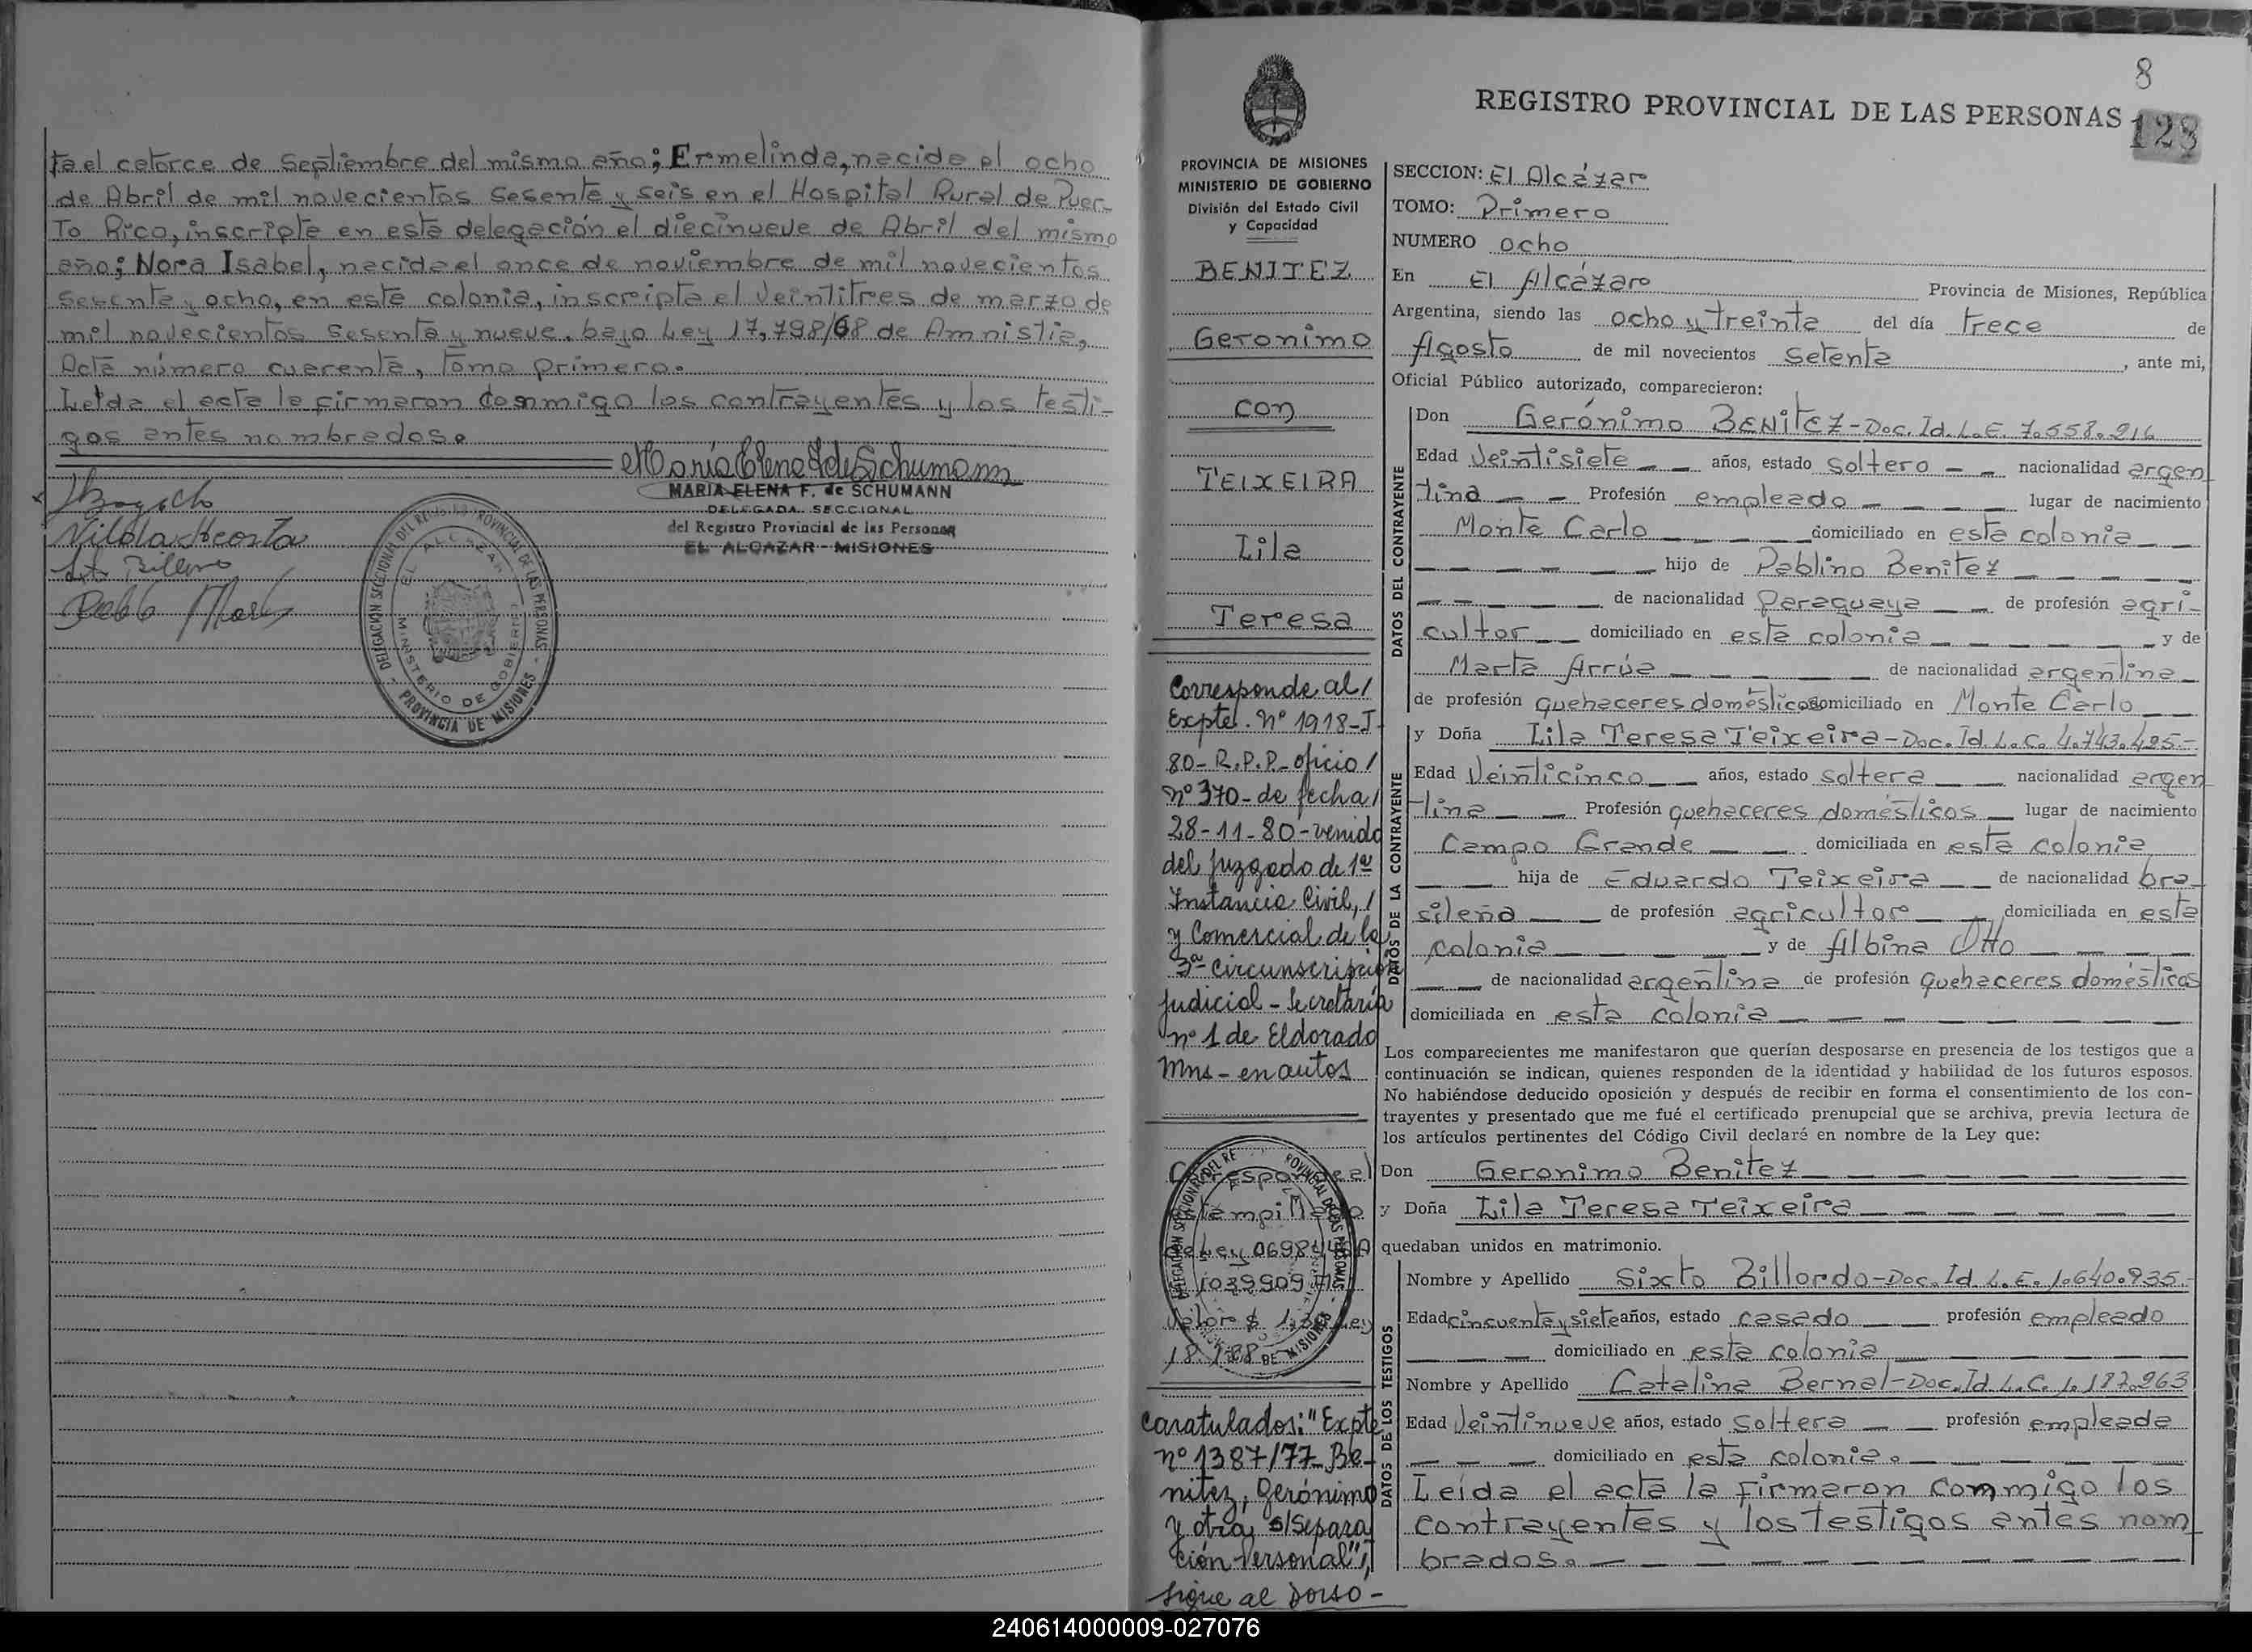 ta el catorce de Septiembre del mismo año; Ermelinda, nacida el ocho
de Abril de mil novecientos sesenta y seis en el Hospital Rural de Puer-
to Rico, inscripta en esta delegación el diecinueve de Abril del mismo
año; Nora Isabel, nacida el once de noviembre de mil novecientos
sesenta y ocho, en esta colonia, inscripta el veintitres de marzo de
mil novecientos sesenta y nueve, bajo Ley 17,798/68 de Amnistia,
Acta número cuarenta, tomo primero.
Leída el acta la firmaron conmigo los contrayentes y los testi-
gos antes nombrados.
MARIA ELENA F. de SCHUMANN
DELEGADA SECCIONAL
del Registro Provincial de las Personas
EL ALCAZAR - MISIONES
DELEGACION SECCIONAL DEL REGISTRO PROVINCIAL DE LAS PERSONAS
EL ALCAZAR
MINISTERIO DE GOBIERNO
- PROVINCIA DE MISIONES -
8
REGISTRO PROVINCIAL DE LAS PERSONAS
128
PROVINCIA DE MISIONES
MINISTERIO DE GOBIERNO
División del Estado Civil
y Capacidad
BENITEZ
Geronimo
con
TEIXEIRA
Lila
Teresa
Corresponde al/
Expte. Nº 1918-J-
80- R.P.P- oficio/
nº 370- de fecha/
28-11-80- venido
del Juzgado de 1ª
Instancia Civil, /
y Comercial de la
3ª circunscripción
Judicial - Secretaría
nº 1 de Eldorado
Mns - en autos
Valor $
caratulados: "Expte
nº 1387/77 Be-
nitez, Gerónimo
y otra, s/Separa
ción Personal",
sigue al Dorso -
SECCION: El Alcázar
TOMO: Primero
NUMERO ocho
En El Alcázar Provincia de Misiones, República
Argentina, siendo las ocho y treinta del día trece de
Agosto de mil novecientos setenta, ante mi,
Oficial Público autorizado, comparecieron:
DATOS DEL CONTRAYENTE
Don Gerónimo BENITEZ - Doc. Id. L.E. 7.558.216
Edad veintisiete años, estado soltero nacionalidad argen
tina Profesión empleado lugar de nacimiento
Monte Carlo domiciliado en esta colonia
hijo de Pablino Benitez
de nacionalidad Paraguaya de profesión agri-
cultor domiciliado en esta colonia y de
Marta Arrúa de nacionalidad argentina
de profesión quehaceres domésticos domiciliado en Monte Carlo
DATOS DE LA CONTRAYENTE
y Doña Lila Teresa Teixeira - Doc. Id. L.C. 4.743.495-
Edad veinticinco años, estado soltera nacionalidad argen
tina Profesión quehaceres domésticos lugar de nacimiento
Campo Grande domiciliada en esta colonia
hija de Eduardo Teixeira de nacionalidad bra-
sileña de profesión agricultor domiciliada en esta
colonia y de Albina Otto
de nacionalidad argentina de profesión quehaceres domésticos
domiciliada en esta colonia
Los comparecientes me manifestaron que querían desposarse en presencia de los testigos que a
continuación se indican, quienes responden de la identidad y habilidad de los futuros esposos.
No habiéndose deducido oposición y después de recibir en forma el consentimiento de los con-
trayentes y presentado que me fué el certificado prenupcial que se archiva, previa lectura de
los artículos pertinentes del Código Civil declaré en nombre de la Ley que:
Don Geronimo Benitez
y Doña Lila Teresa Teixeira
quedaban unidos en matrimonio.
DATOS DE LOS TESTIGOS
Nombre y Apellido Sixto Billordo - Doc. Id L.E. 1.640.935.-
Edad cincuenta y siete años, estado casado profesión empleado
domiciliado en esta colonia
Nombre y Apellido Catalina Bernal - Doc. Id L.C. 1.187.963
Edad veintinueve años, estado soltera profesión empleada
domiciliado en esta colonia.
Leída el acta la firmaron commigo los
contrayentes y los testigos antes nom
brados.
240614000009-027076